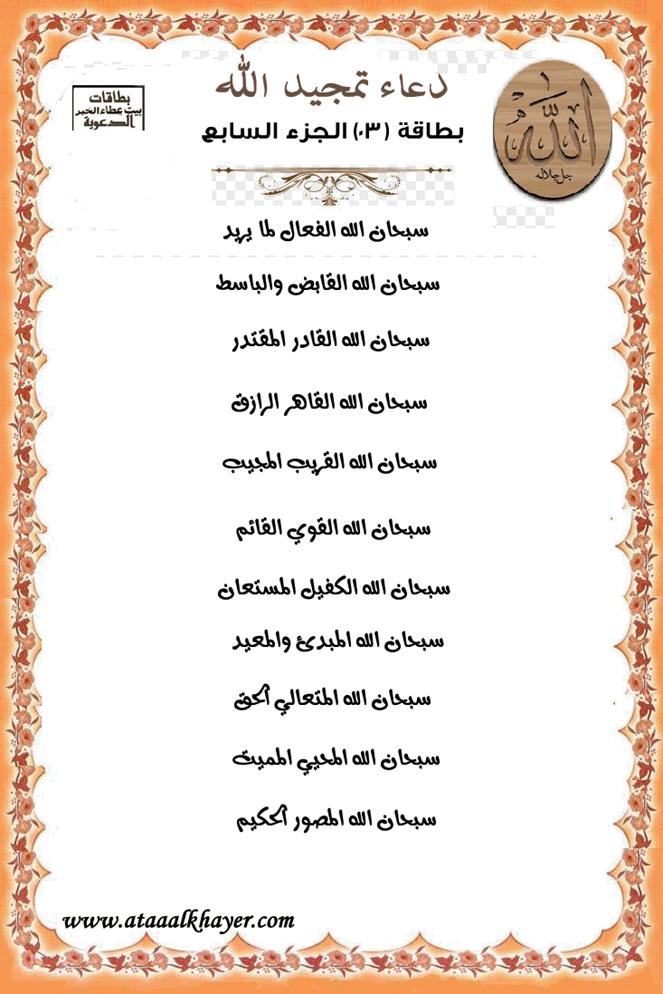 دعاء تمجيد الله
بطاقة (٠٣) الجزء السابع
الله
جل جلاله
بطاقات
بيت عطاء الخير
الدعوية
سبحان الله الفعال لما يريد
سبحان الله القابض والباسط
سبحان الله القادر المقتدر
سبحان الله القاهر الرازق
سبحان الله القريب المجيب
سبحان الله القوي القائم
سبحان الله الكفيل المستعان
سبحان الله المبدئ والمعيد
سبحان الله المتعالي الحق
سبحان الله المحيي المميت
سبحان الله المصور الحكيم
www.ataaalkhayer.com